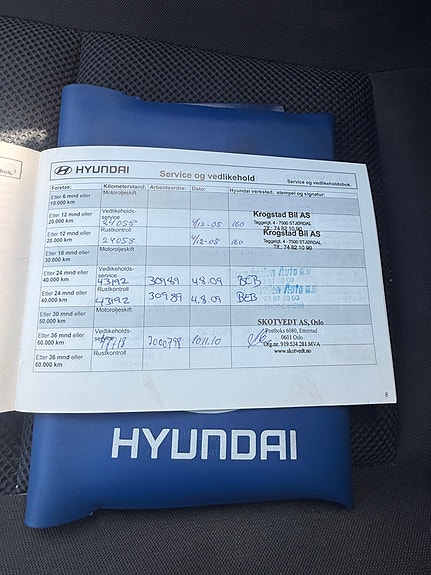 HYUNDAI Service og vedlikehold Service og vedlikeholdsbok.
Foretas: Kilometerstand: Arbeidsordre: Dato: Hyundai verksted, stempel og signatur
Etter 6 mnd eller Motoroljeskift
10.000 km
Etter 12 mnd eller Vedlikeholds- Krogstad Bil AS
20.000 km service 24058 4/12-08 160 Teggeigt. 4 - 7500 STJØRDAL
Tlf.: 74 82 10 90
Etter 12 mnd eller Rustkontroll Krogstad Bil AS
20.000 km 24058 4/12-08 160 Teggeigt. 4 - 7500 STJØRDAL
Tlf.: 74 82 10 90
Motoroljeskift
30.000 km
Etter 24 mnd eller Vedlikeholds-
40.000 km service 43192 30989 4.8.09 BEB Auto
Etter 24 mnd eller Rustkontroll
40.000 km 43192 30989 4.8.09 BEB
Etter 30 mnd eller Motoroljeskift
50.000 km
SKOTVEDT AS, Oslo
Etter 36 mnd eller Vedlikeholds- Postboks 6080, Etterstad
60.000 km service 10.11.10 0601 Oslo
Etter 36 mnd eller Rustkontroll Org.nr. 919.534.281.MVA
60.000 km www.skotvedt.no
8
HYUNDAI